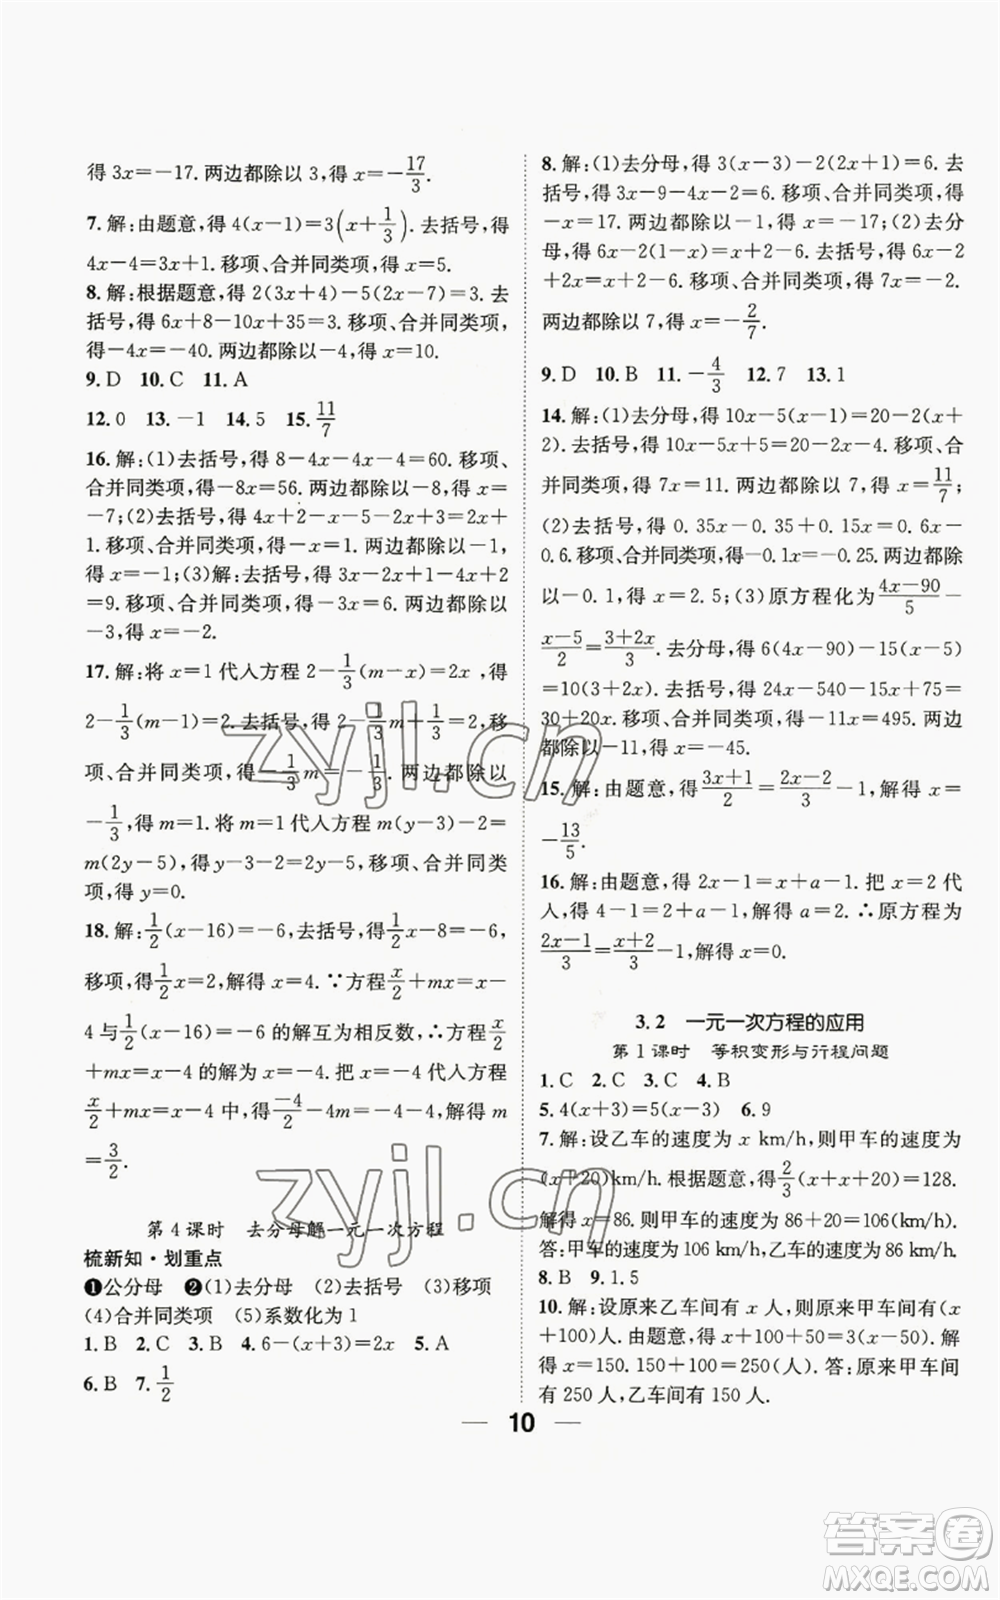 得 3x=-17. 两边都除以 3,得 x=-17/3.
7. 解:由题意,得 4(x-1)=3(x+1/3). 去括号,得
4x-4=3x+1. 移项、合并同类项,得 x=5.
8. 解:根据题意,得 2(3x+4)-5(2x-7)=3. 去
括号,得 6x+8-10x+35=3. 移项、合并同类项,
得-4x=-40. 两边都除以-4,得 x=10.
9. D 10. C 11. A
12. 0 13. -1 14. 5 15. 11/7
16. 解:(1)去括号,得 8-4x-4x-4=60. 移项、
合并同类项,得-8x=56. 两边都除以-8,得 x=
-7;(2)去括号,得 4x+2-x-5-2x-4=2x+
1. 移项、合并同类项,得-x=8. 两边都除以-1,
得 x=-1;(3)解:去括号,得 3x-4x-2-2x-4
=9. 移项、合并同类项,得-3x=6. 两边都除以
-3,得 x=-2.
17. 解:将 x=1 代入方程 2-1/3(m-x)=2x ,得
2-1/3(m-1)=2. 去括号,得 2-1/3m+1/3=2,移
项、合并同类项,得-1/3m=-1/3. 两边都除以
-1/3,得 m=1. 将 m=1 代入方程 m(y-3)-2=
m(2y-5),得 y-3-2=2y-5,移项、合并同类
项,得 y=0.
18. 解:1/2(x-16)=-6,去括号,得1/2x-8=-6,
移项,得1/2x=2,解得 x=4. ∵方程x/2+mx=x-
4 与1/2(x-16)=-6 的解互为相反数,∴方程x/2
+mx=x-4 的解为 x=-4. 把 x=-4 代入方程
x/2+mx=x-4 中,得-4/2-4m=-4-4,解得 m
=3/2.
第 4 课时 去分母解一元一次方程
梳新知·划重点
❶公分母 ❷(1)去分母 (2)去括号 (3)移项
(4)合并同类项 (5)系数化为 1
1. B 2. C 3. B 4. 6-(x+3)=2x 5. A
6. B 7. 1/2
8. 解:(1)去分母,得 3(x-3)-2(2x+1)=6. 去
括号,得 3x-9-4x-2=6. 移项、合并同类项,得
-x=17. 两边都除以-1,得 x=-17;(2)去分
母,得 6x-2(1-x)=x+2-6. 去括号,得 6x-2
+2x=x+2-6. 移项、合并同类项,得 7x=-2.
两边都除以 7,得 x=-2/7.
9. D 10. B 11. -4/3 12. 7 13. 1
14. 解:(1)去分母,得 10x-5(x-1)=20-2(x+
2). 去括号,得 10x-5x+5=20-2x-4. 移项、合
并同类项,得 7x=11. 两边都除以 7,得 x=11/7;
(2)去括号,得 0.35x-0.6+0.15x=0.6x-
0.6. 移项、合并同类项,得-0.1x=-0.25. 两边都除
以-0.1,得 x=2.5;(3)原方程化为(4x-90)/5-
(x-5)/2=(3+2x)/3. 去分母,得 6(4x-90)-15(x-5)
=10(3+2x). 去括号,得 24x-540-15x+75=
30+20x. 移项、合并同类项,得-11x=495. 两边
都除以-11,得 x=-45.
15. 解:由题意,得(3x+1)/2=(2x-2)/3-1,解得 x=
-13/5.
16. 解:由题意,得 2x-1=x+a-1. 把 x=2 代
入,得 4-1=2+a-1,解得 a=2. ∴原方程为
(2x-1)/3=(x+2)/3-1,解得 x=0.
3.2 一元一次方程的应用
第 1 课时 等积变形与行程问题
1. C 2. C 3. C 4. B
5. 4(x+3)=5(x-3) 6. 9
7. 解:设乙车的速度为 x km/h,则甲车的速度为
(x+20)km/h. 根据题意,得2/3(x+x+20)=128.
解得 x=86. 则甲车的速度为 86+20=106.
答:甲车的速度为 106 km/h,乙车的速度为 86 km/h.
8. B 9. 1.5
10. 解:设原来乙车间有 x 人,则原来甲车间有(x
+100)人. 由题意,得 x+100+50=3(x-50). 解
得 x=150. 150+100=250(人). 答:原来甲车间
有 250 人,乙车间有 150 人.
10
zyjl.cn
zyjl.cn
答案卷
MXQE.COM